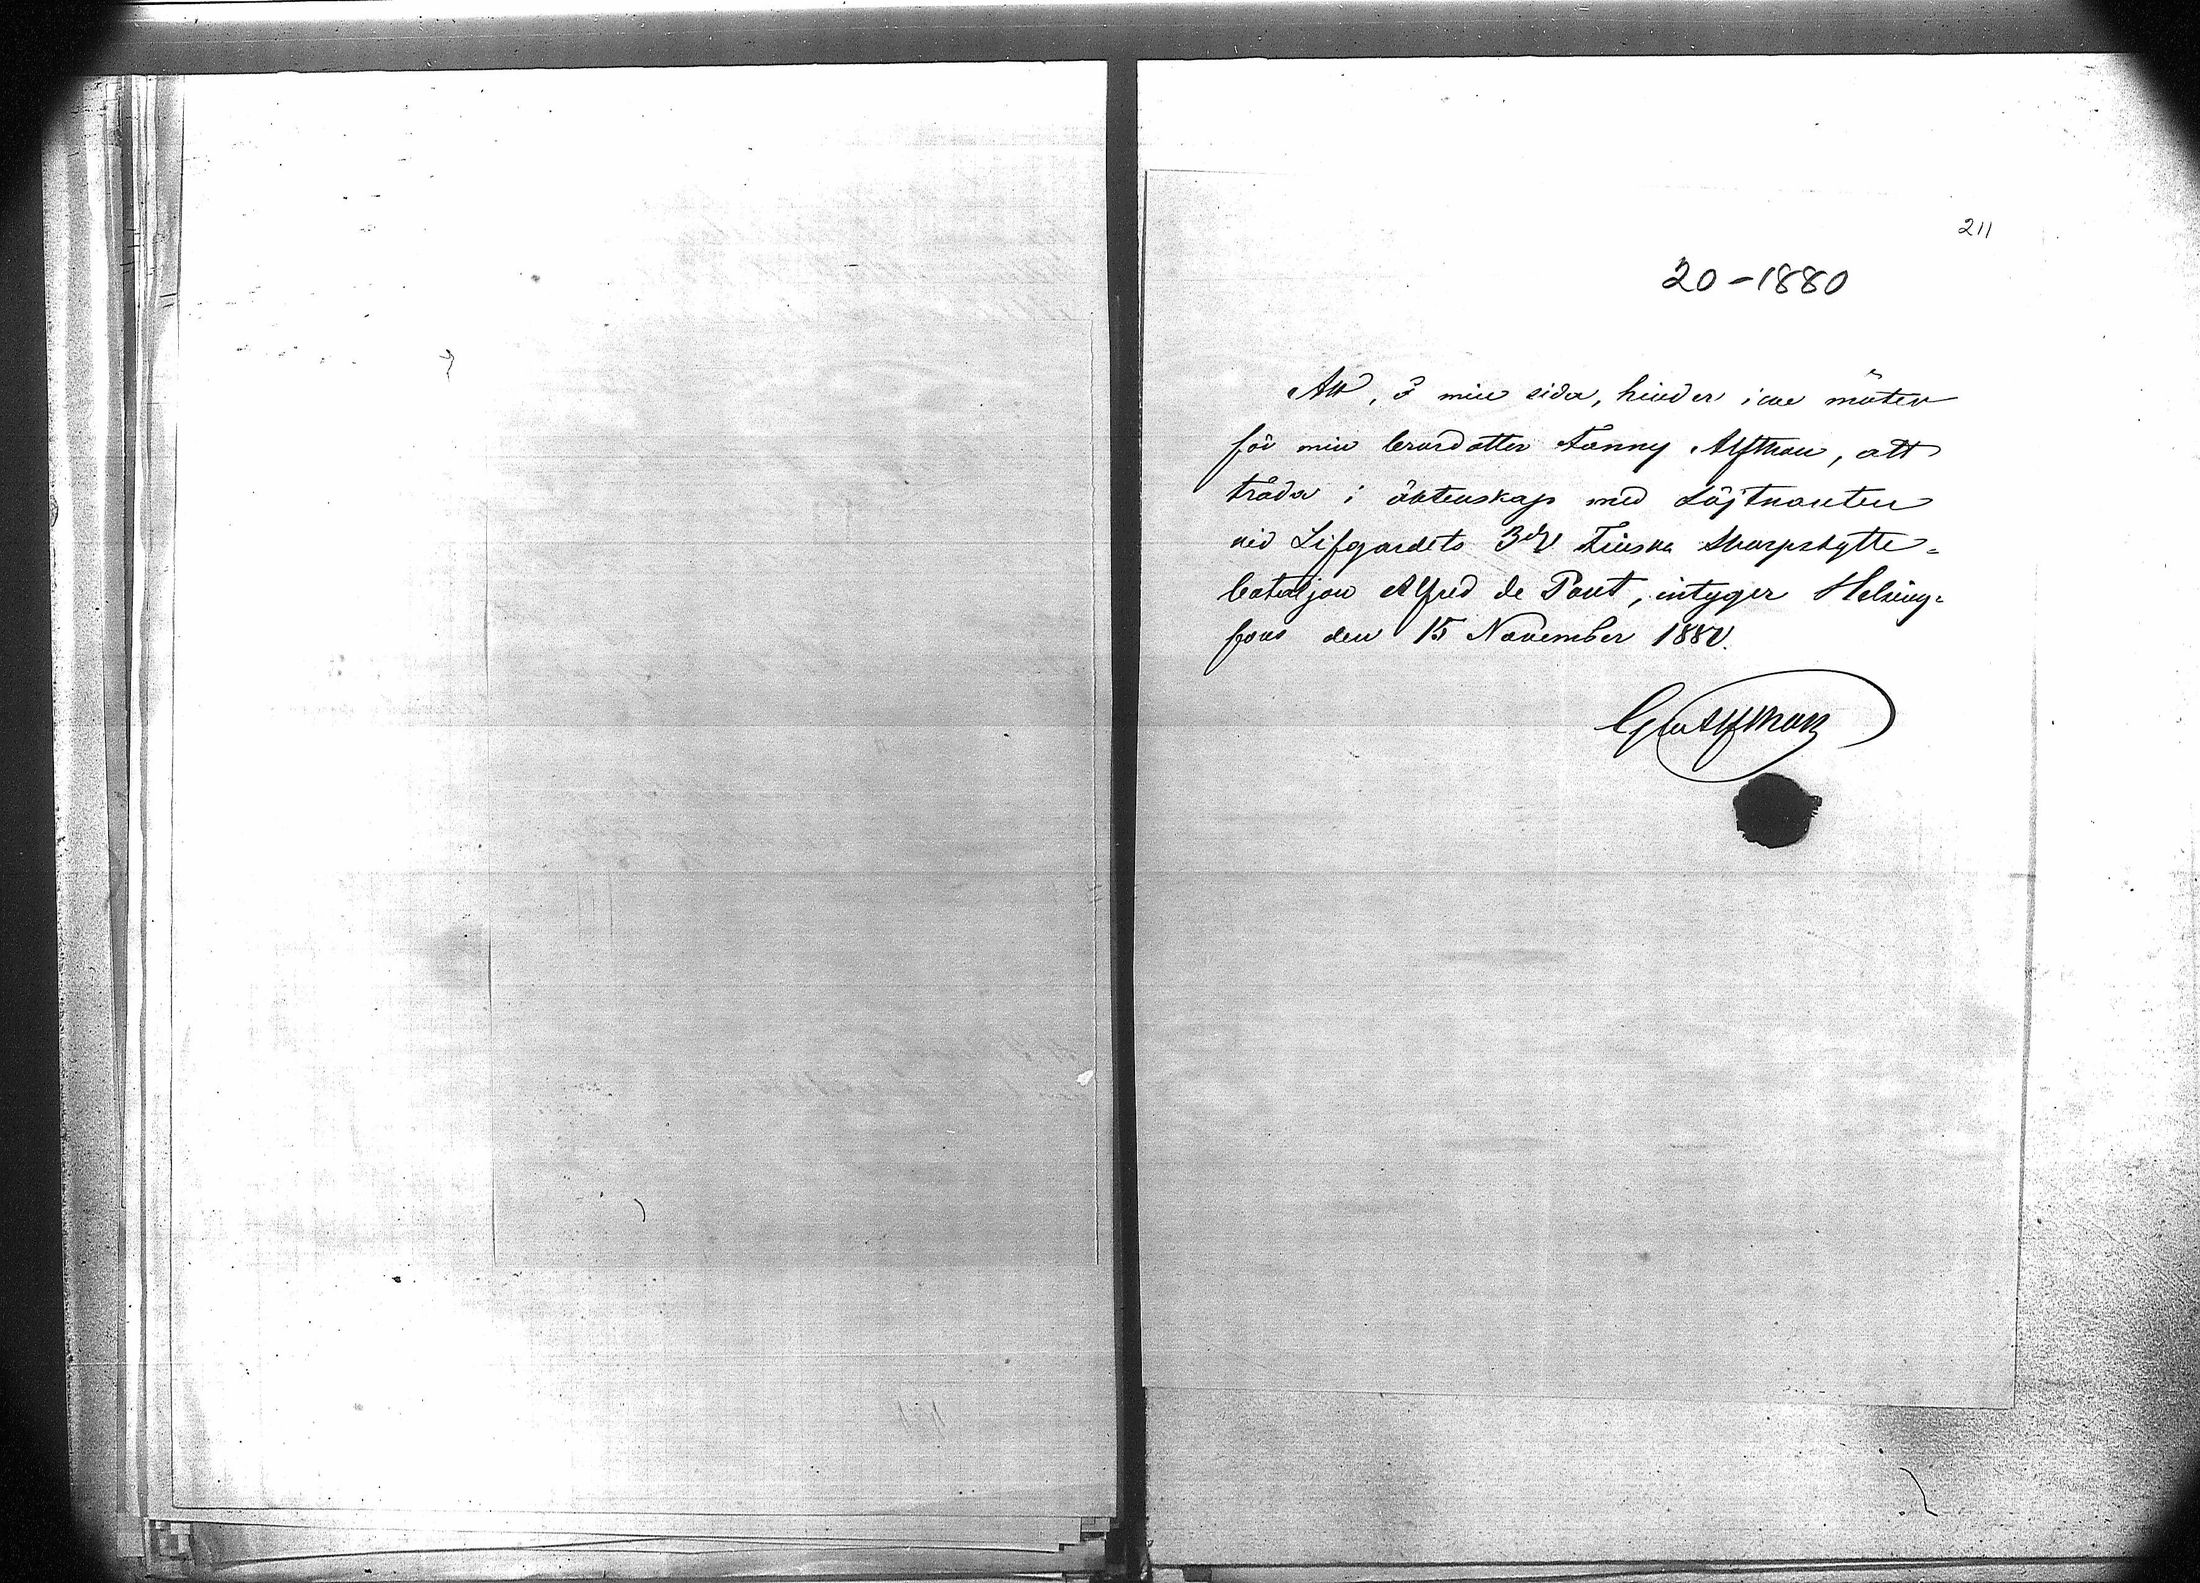 211
20-1880
Att, å min sida, hinder icke möter
för min brorsdotter Fanny Alfthan, att
träda i äktenskap med Löjtnanten
vid Lifgardets 3dje Finska Skarpskytte-
bataljon Alfred de Pont, intyger Helsing-
fors den 15 November 1880.
Alfthan